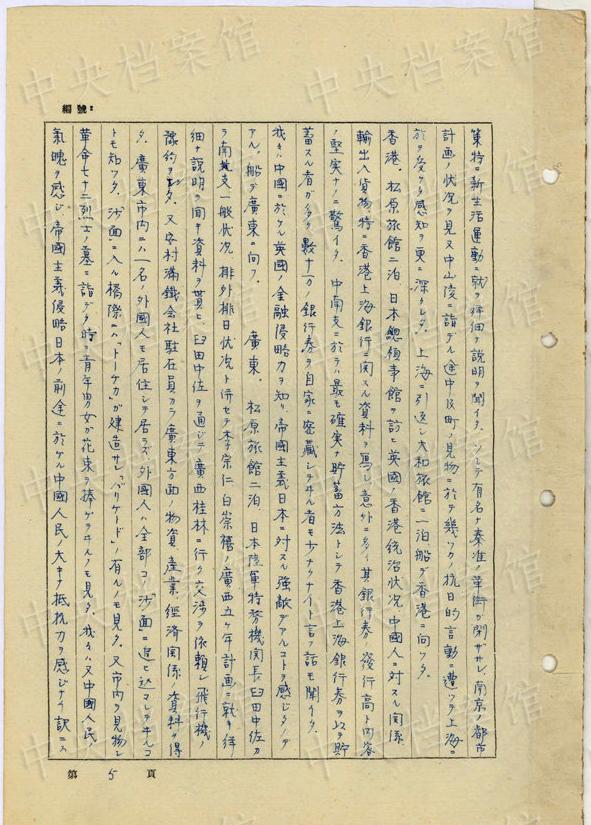 編號:
策特ニ新生活運動ニ就テ詳細ナ説明ヲ聞イタ。ソシテ有名ナ秦淮ノ華街ガ閉ザサレ、南京ノ都市
計画ノ状況ヲ見又中山陵ニ詣デル途中及町ノ見物ニ於テ幾ツカノ抗日的言動ニ遭ツタ上海ニ
於テ受ケタ感知ヲ更ニ深クシタ。上海ニ引返シ大和旅館ニ一泊船デ香港ニ向ツタ。
香港、松原旅館二泊、日本總領事館ヲ訪ヒ英國ノ香港統治状況、中國人ニ対スル関係
輸出入貨物特ニ香港上海銀行ニ関スル資料ヲ寫シ意外ニ多イ其銀行券ノ發行高ト内容
ノ堅実ナノニ驚イタ。中南支ニ於テハ最モ確実ナ貯蓄方法トシテ香港上海銀行券ヲ以テ貯
蓄スル者ガ多ク数十万ノ銀行券ヲ自家ニ密藏シテヰル者モ少ナクナイト言フ話モ聞イタ。
我々ハ中國ニ於ケル英國ノ金融侵略力ヲ知リ、帝國主義日本ニ対スル強敵デアルコトヲ感ジタノデ
アル。船デ廣東ニ向フ。 廣東、松原旅館二泊、日本陸軍特務機関長臼田中佐カ
ラ南支一般状況、排外排日状況ト併セテ李宗仁白崇禧ノ廣西五ケ年計画ニ就キ詳
細ナ説明ヲ聞キ資料ヲ貰ヒ臼田中佐ヲ通ジテ廣西桂林ニ行ク交渉ヲ依頼シ飛行機ノ
豫約ヲシタ、又安村滿鐵会社駐在員カラ廣東方面ノ物資、産業、經済関係ノ資料ヲ得
タ。廣東市内ニハ一名ノ外國人モ居住シテ居ラズ外國人ハ全部コノ「沙面」ニ追ヒ込マレテヰルコ
トモ知ツタ。「沙面」ニ入ル橋際ニハ「トーチカ」ガ建造サレ「バリケード」ノ有ルノモ見タ。又市内ヲ見物シ
革命七十二烈士ノ墓ニ詣デタ時ヲ青年男女ガ花束ヲ捧ゲテヰルノモ見タ。我々ハ又中國人民ノ
氣魄ヲ感ジ、帝國主義侵略日本ノ前途ニ於ケル中國人民ノ大キナ抵抗力ヲ感ジナイ訳ニハ
第 5 頁
中央档案馆